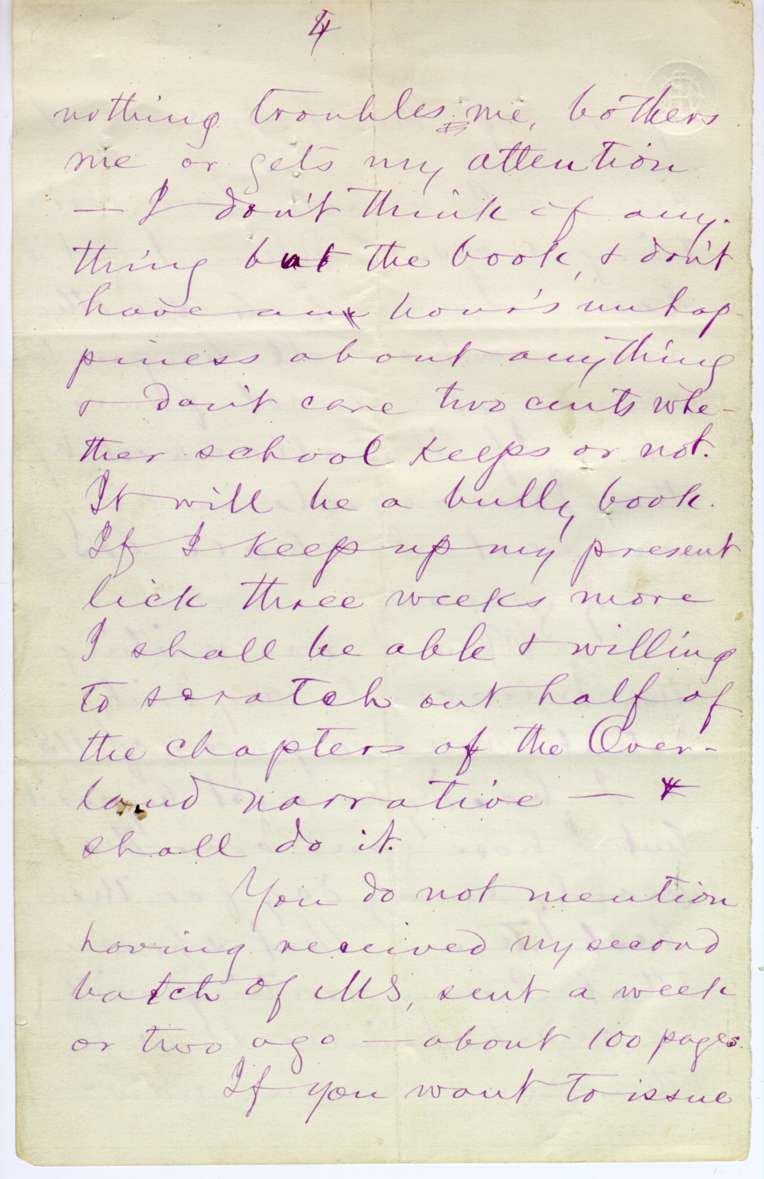 4
nothing troubles me, bothers
me or gets my attention
— I don't think of any-
thing but the book, & don't
have an hour's unhap-
piness about anything
& don't care two cents whe-
ther school keeps or not.
It will be a bully book.
If I keep up my present
lick three weeks more
I shall be able & willing
to scratch out half of
the chapters of the Over-
land narrative — &
shall do it.
You do not mention
having received my second
batch of MS, sent a week
or two ago — about 100 pages.
If you want to issue